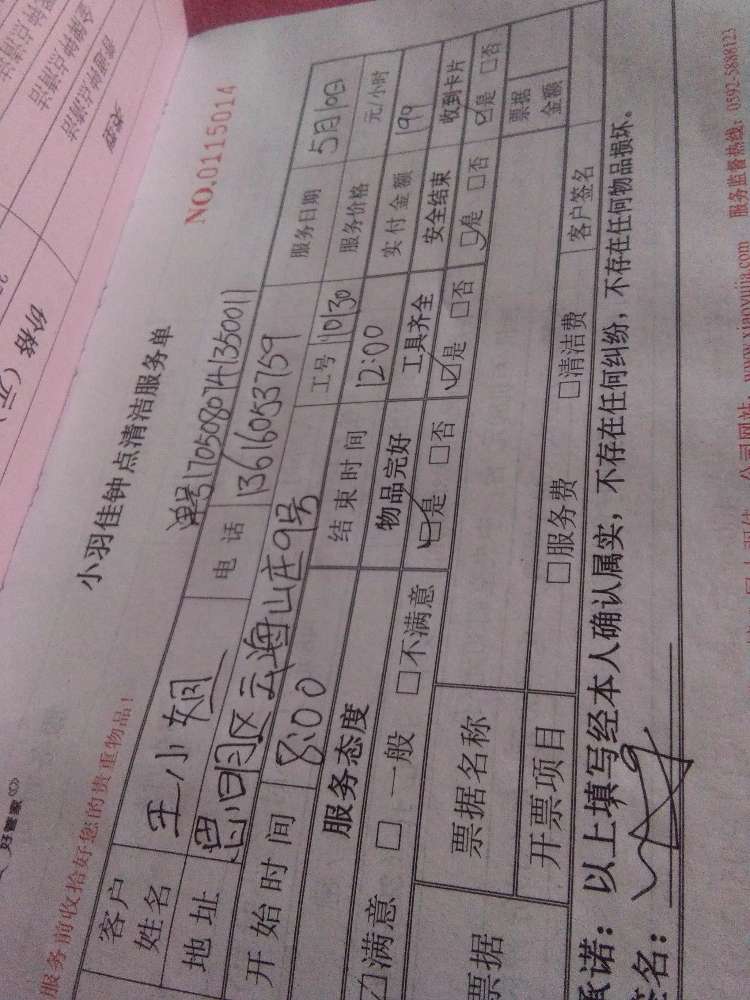 好管家
服务前收拾好您的贵重物品！
小羽佳钟点清洁服务单
NO.0115014
单号1705080741350011
客户姓名 王小姐 电话 13616053759 服务日期 5月10日
地址 思明区云海山庄9号 工号 1030 服务价格 元/小时
开始时间 8:00 结束时间 12:00 实付金额 190
服务态度 物品完好 工具齐全 安全结束 收到卡片
☑满意 □一般 □不满意 ☑是 □否 ☑是 □否 ☑是 □否 ☑是 □否
票据 票据名称 票据金额
开票项目 □服务费 □清洁费 客户签名
承诺：以上填写经本人确认属实，不存在任何纠纷，不存在任何物品损坏。
签名：
服务监督热线：0592-5888123
类型
普通钟点清洁
金牌钟点清洁
价格（元）